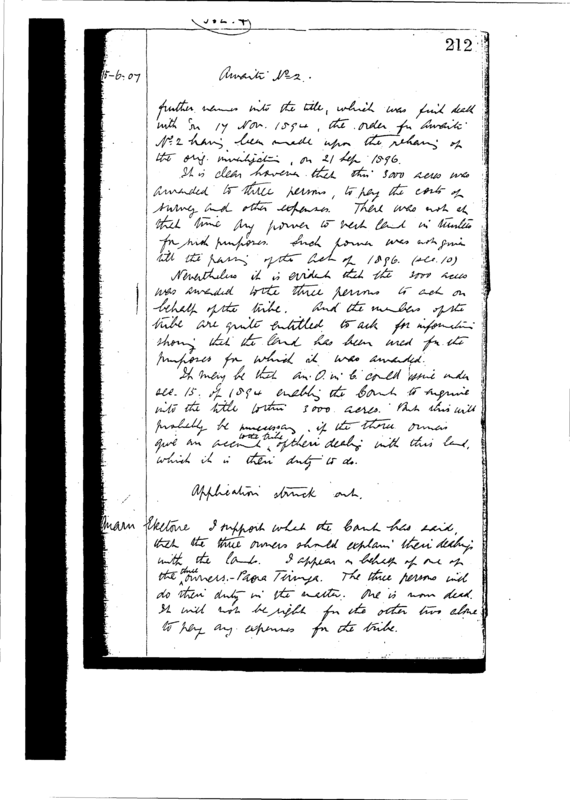 VOL. 4
212
15-6-07
Awaiti No 2.
further names into the title, which was first dealt
with on 17 Nov. 1894, the order for Awaiti
No 2 having been made upon the rehearing of
the orig. investigation, on 21 Sep. 1896.
It is clear however that this 3000 acres was
awarded to three persons, to pay the costs of
survey and other expenses. There was not at
that time any power to vest land in trustees
for such purposes. Such power was not given
till the passing of the Act of 1896. (sec. 10)
Nevertheless it is evident that the 3000 acres
was awarded to the three persons to act on
behalf of the tribe. And the members of the
tribe are quite entitled to ask for information
showing that the land has been used for the
purposes for which it was awarded.
It may be that an O. in C. could issue under
sec. 15. of 1894 enabling the Court to enquire
into the title to this 3000 acres. But this will
probably be unnecessary, if the three owners
give an account to the tribe of their dealings with this land,
which it is their duty to do.
Application struck out.
Eketone I support what the Court has said,
that the three owners should explain their dealings
with the land. I appear on behalf of one of
the three owners. - Paora Tiunga. The three persons will
do their duty in the matter. One is now dead.
It will not be right for the other two alone
to pay any expenses for the tribe.